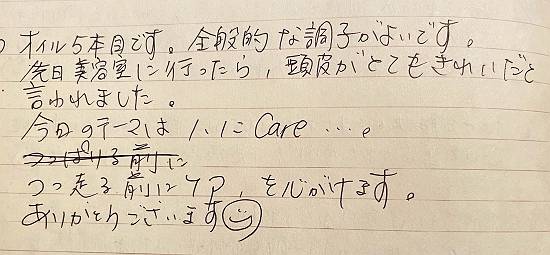 オイル5本目です。全般的な調子がよいです。
先日美容室に行ったら、頭皮がとてもきれいだと
言われました。
今日のテーマは ハハに Care ….。
つっぱりる前に
つっ走る前にケア、を心がけます。
ありがとうございます☺